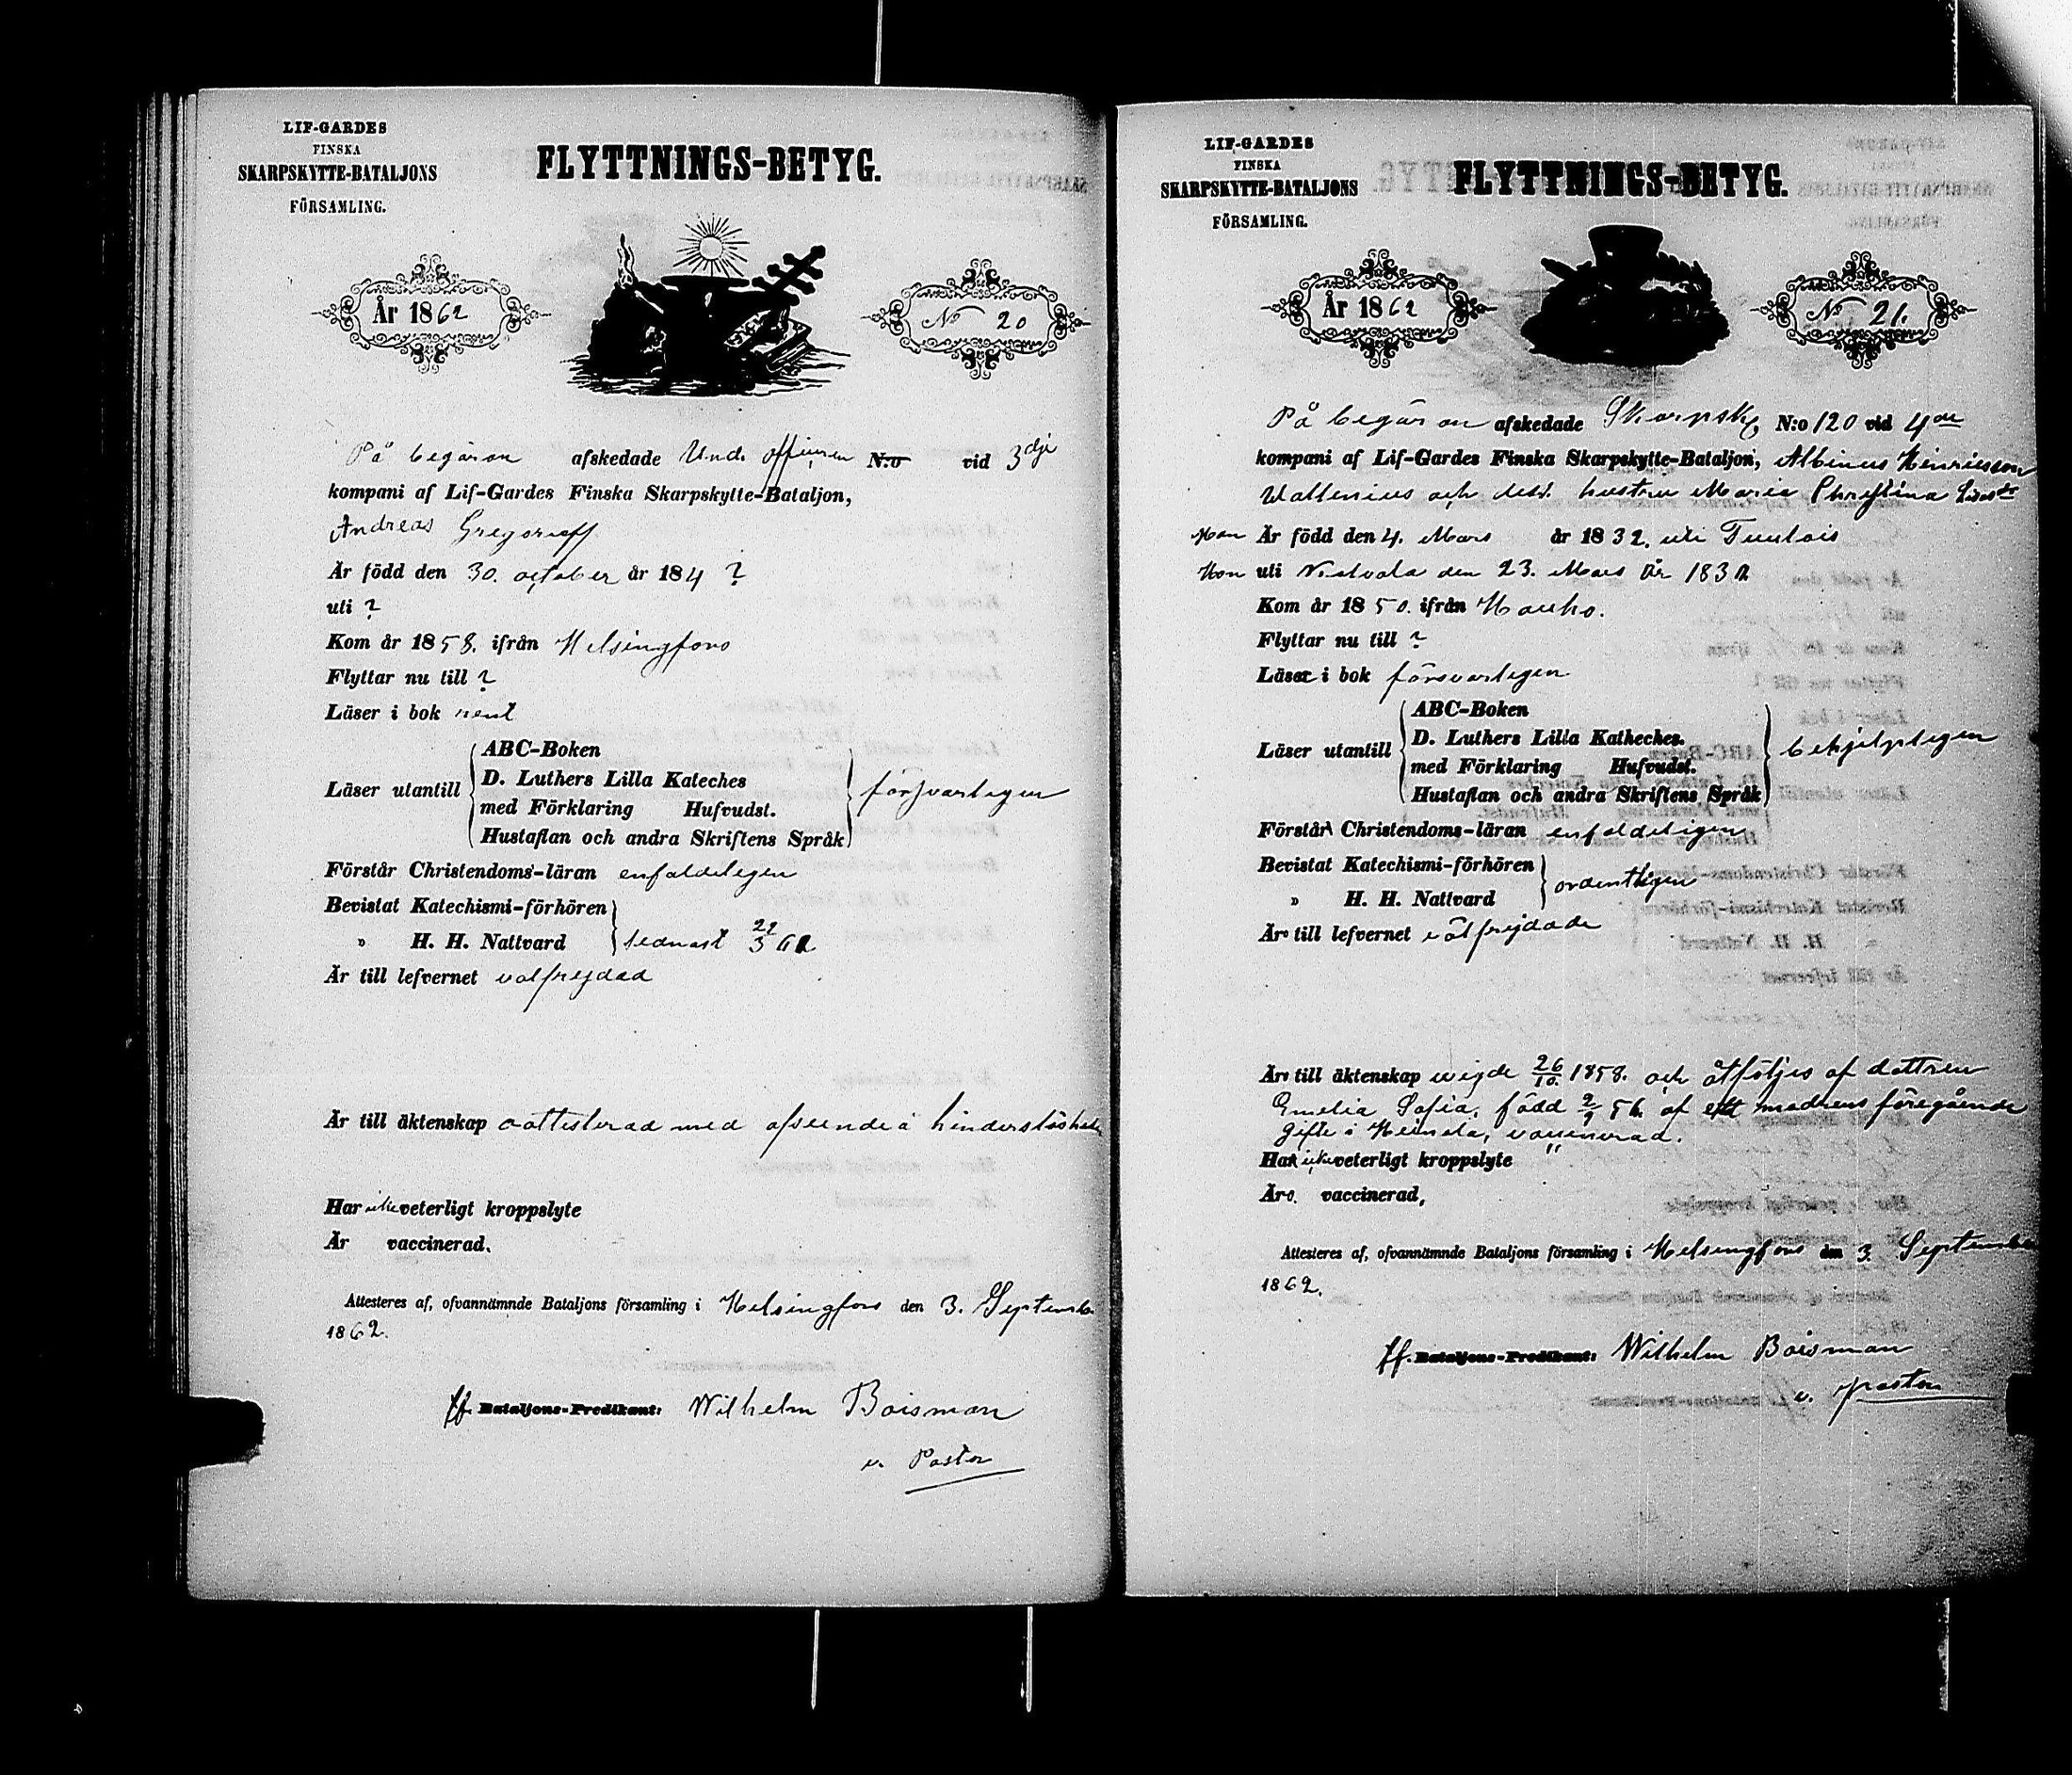 LIF-GARDES
FINSKA
SKARPSKYTTE-BATALJONS
FÖRSAMLING.
FLYTTNINGS-BETYG.
År 1862
No 20
På begäran afskedade Und. officiren N:o vid 3dje
kompani af Lif-Gardes Finska Skarpskytte-Bataljon,
Andreas Gregorieff
Är född den 30. october år 184 ?
uti ?
Kom år 1858. ifrån Helsingfors
Flyttar nu till ?
Läser i bok rent
Läser utantill
ABC-Boken
D. Luthers Lilla Kateches
med Förklaring Hufvudst.
Hustaflan och andra Skriftens Språk
försvarligen
Förstår Christendoms-läran enfaldeligen
Bevistat Katechismi-förhören
" H. H. Nattvard
sednast 22/3 62
Är till lefvernet välfrejdad
Är till äktenskap oattesterad med afseende å hinderslöshet
Har icke veterligt kroppslyte
Är vaccinerad.
Attesteres af, ofvannämnde Bataljons församling i Helsingfors den 3. September
1862.
ff. Bataljons-Predikant: Wilhelm Boisman
v. Pastor
LIF-GARDES
FINSKA
SKARPSKYTTE-BATALJONS
FÖRSAMLING.
FLYTTNINGS-BETYG.
År 1862
No 21.
På begäran afskedade Skarpsk. N:o 120 vid 4de
kompani af Lif-Gardes Finska Skarpskytte-Bataljon, Albinus Henricsson
Wallenius och dess hustru Maria Christina
Han Är född den 4. Mars år 1832. uti Tuulois
Hon uti Nastola den 23. Mars år 1832
Kom år 1850. ifrån Hauho.
Flyttar nu till ?
Läser i bok försvarligen
Läser utantill
ABC-Boken
D. Luthers Lilla Katheches.
med Förklaring Hufvudst.
Hustaflan och andra Skriftens Språk
behjelpligen
Förstår Christendoms-läran enfaldeligen
Bevistat Katechismi-förhören
" H. H. Nattvard
ordentligen
Äro till lefvernet välfrejdade
Äro till äktenskap wigde 26/10. 1858. och åtföljes af dottren
Emelia Sofia, född 2/9 56. af modrens föregående
gifte i Heinola, vaccinerad.
Ha icke veterligt kroppslyte "
Äro. vaccinerad,
Attesteres af, ofvannämnde Bataljons församling i Helsingfors den 3. September
1862.
ff. Bataljons-Predikant: Wilhelm Boisman
v. Pastor